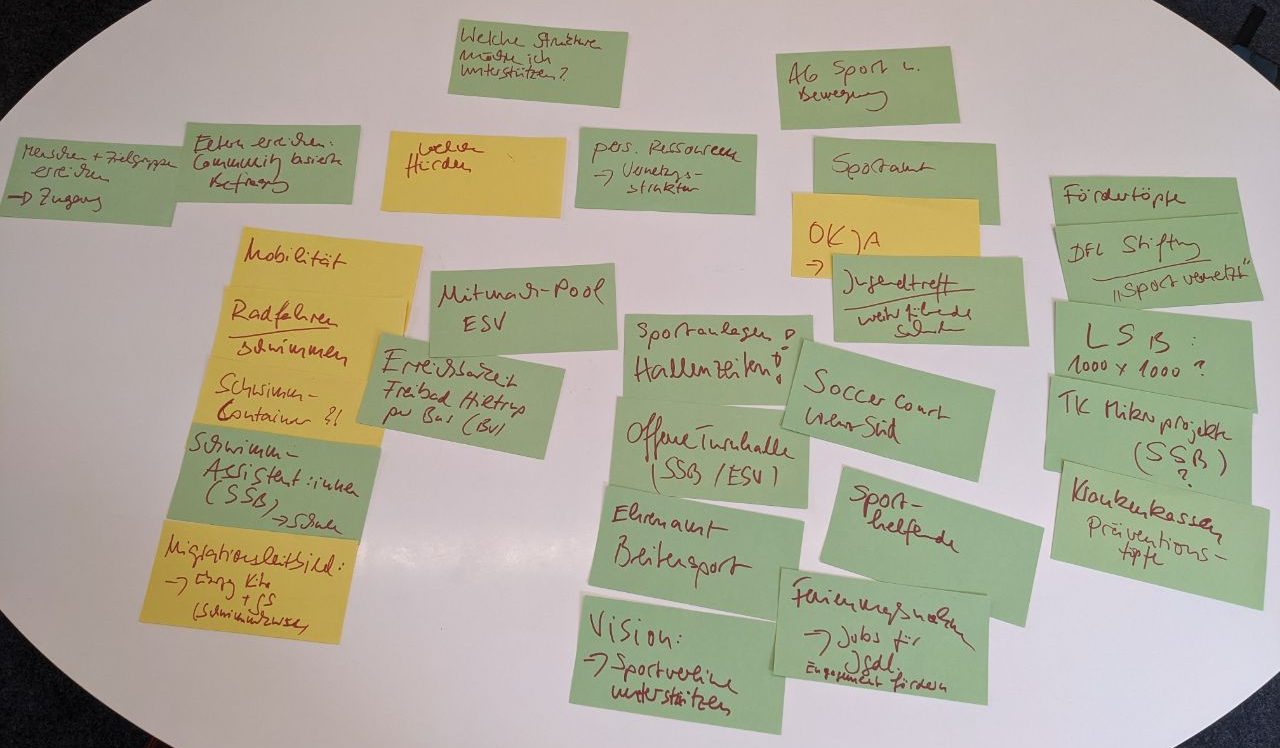 Welche Strukturen
möchte ich
unterstützen?
AG Sport u.
Bewegung
Menschen + Zielgruppen
erreichen
→ Zugang
Eltern erreichen:
Community basierte
Befragung
welche
Hürden
pers. Ressourcen
→ Vernetzungs-
strukturen
Sportamt
OKJA
→
Jugendtreff
weiterführende
Schulen
Fördertöpfe
DFL Stiftung
"Sport vernetzt"
LSB:
1000 x 1000 ?
TK Mikroprojekte
(SSB)
?
Krankenkassen
Präventions-
töpfe
Mobilität
Radfahren
Schwimmen
Schwimm-
Container ?!
Schwimm-
Assistent:innen
(SSB)
→ Schulen
Migrationsleitbild:
→ Kita
+ GS
Mitmach-Pool
ESV
Erreichbarkeit
Freibad Hiltrup
per Bus (BV)
Sportanlagen!
Hallenzeiten!
Offene Turnhalle
(SSB/ESV)
Ehrenamt
Breitensport
Vision:
→ Sportvereine
unterstützen
Soccer Court
Süd
Sport-
helfende
→ Jobs für
Jgdl.
Engagement fördern